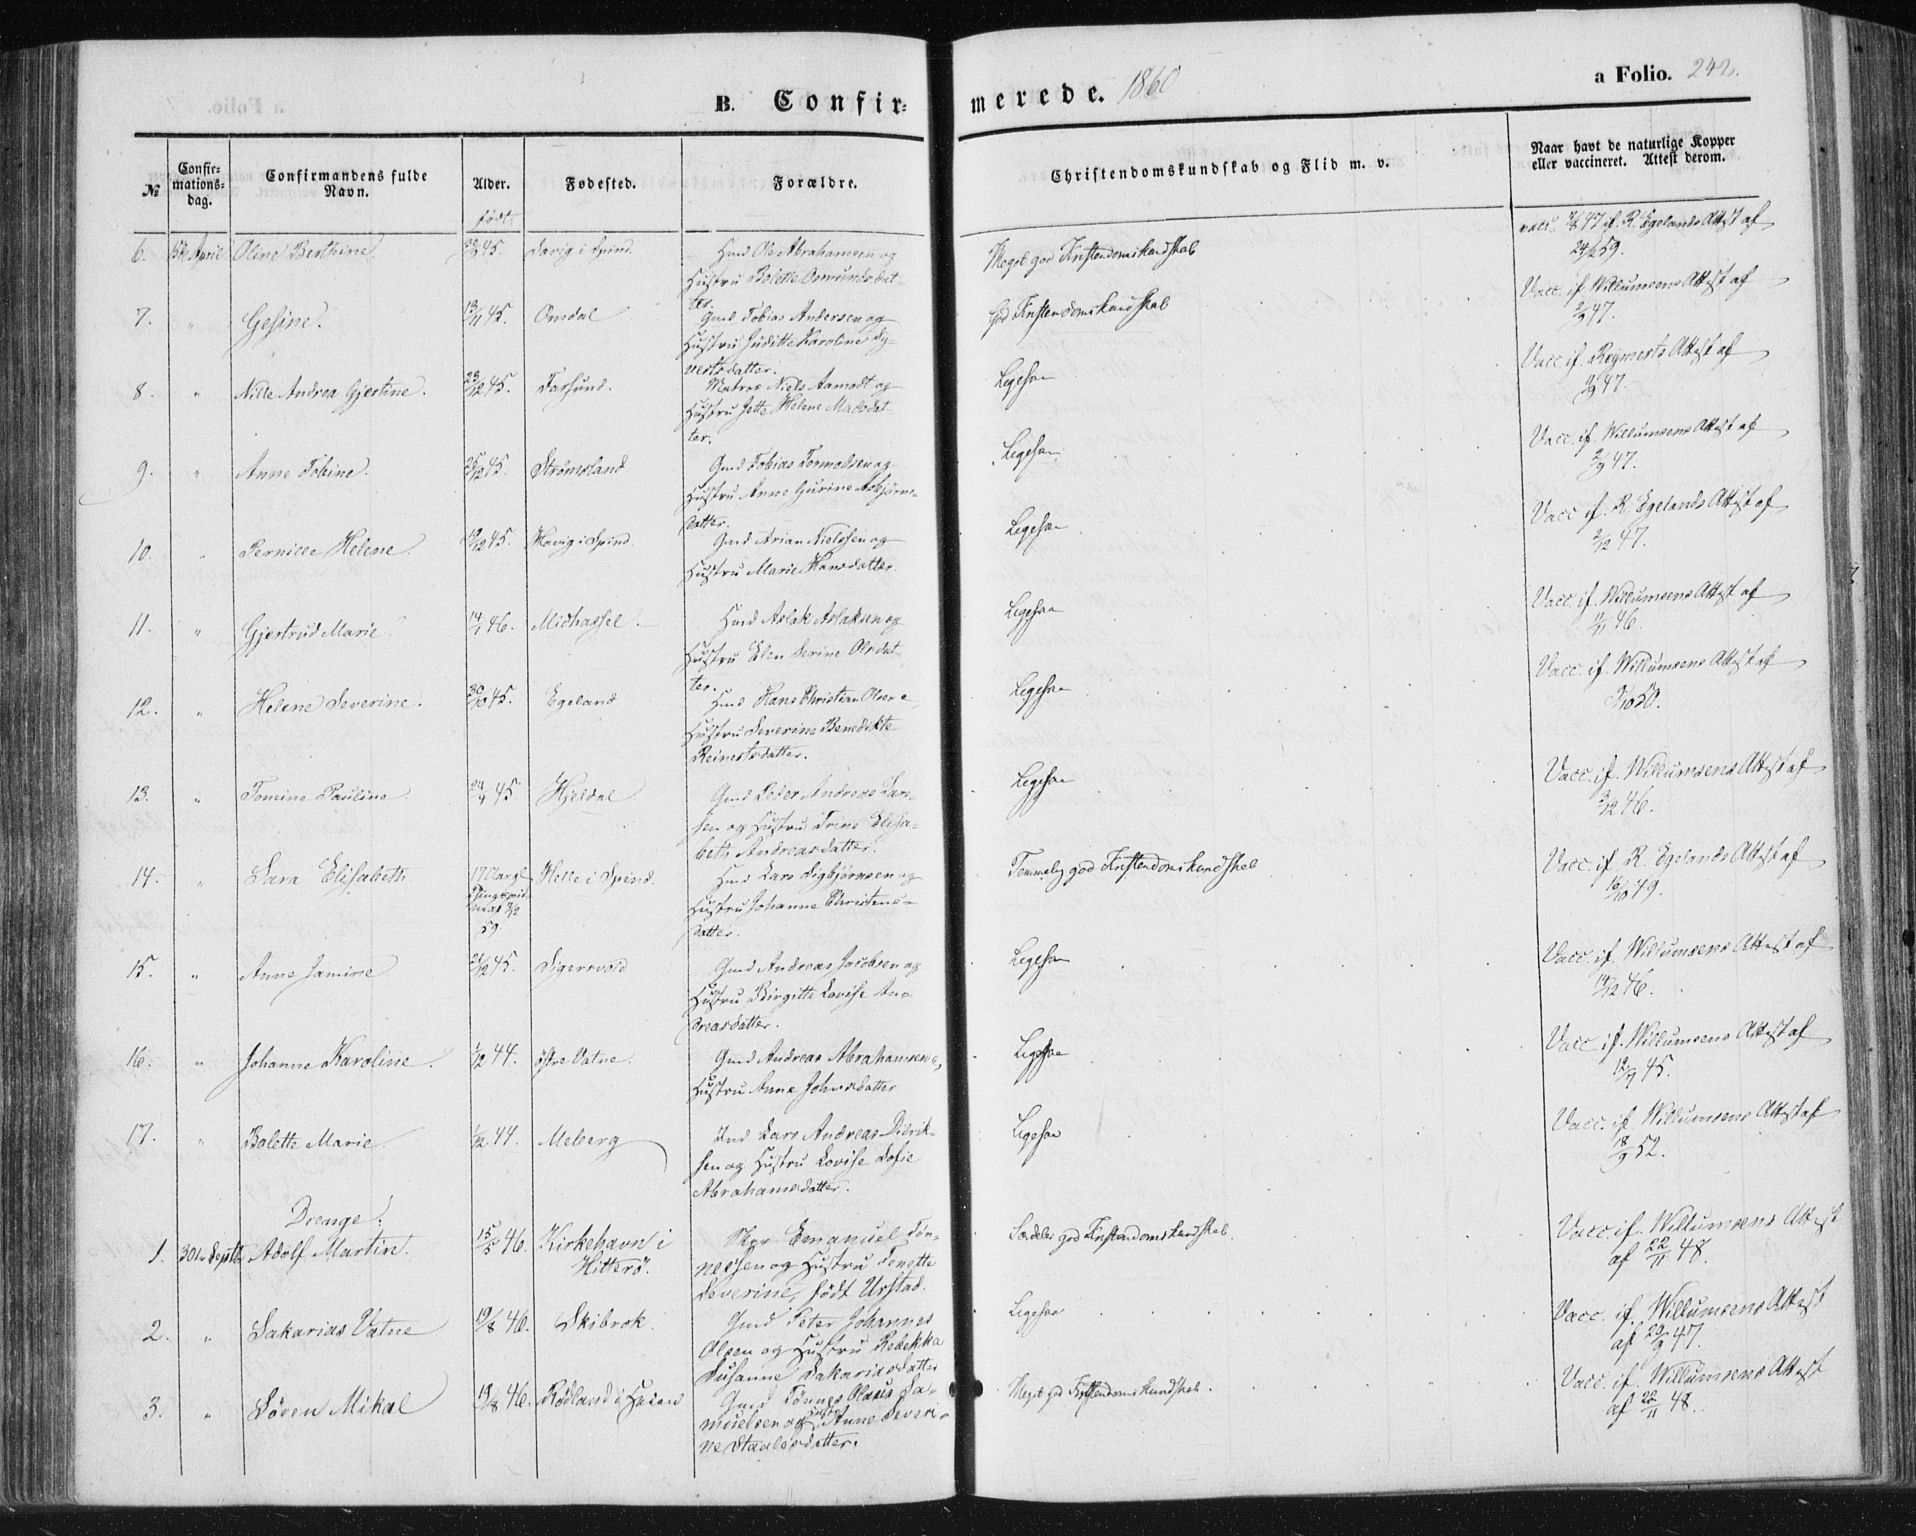 B. Confir-
merede. 1860
a Folio. 242.
№
Confir-
mations-
dag.
Confirmandens fulde
Navn.
Alder.
Fødested.
Forældre.
Christendomskundskab og Flid m. v.
Naar havt de naturlige Kopper
eller vaccineret. Attest derom.
født
6. April Oline Berthine 45. i Spind. Hmd Ole Abrahamsen og
Hustru Bolette Osmundsdat-
ter.
Meget god Kristendomskundskab
vacc. 47 if. R. Egelands Attest af
59.
7. " Gesine. 13/11 45. Omdal Gmd Tobias Andersen og
Hustru Juditte Karoline Sy-
vertsdatter.
God Kristendomskundskab
Vacc. if. Willumsens Attest af
2/9 47.
8. " Nille Andrea Gjertine. 23/12 45. Farsund. Matros Niels Aamodt og
Hustru Jette Helene Madsdat-
ter.
Ligesaa
Vacc. if. Reymerts Attest af
2/9 47.
9. " Anne Tobine. 25/12 45. Strømsland. Gmd Tobias Tormodsen og
Hustru Anne Gurine Asbjørns-
datter.
Ligesaa
Vacc. if. Willumsens Attest af
2/9 47.
10. " Pernille Helene. 19/12 45. i Spind. Gmd Arian Nielssen og
Hustru Marie Hansdatter
Ligesaa
Vacc if. R. Egelands Attest af
2/12 47.
11. " Gjertrud Marie. 14/1 46. Midhassel. Hmd Aslak Aslaksen og
Hustru Elen Serine Olsdat-
ter.
Ligesaa
Vacc. if. Willumsens Attest af
11/11 46.
12. " Helene Severine. 30/10 45. Egeland Hmd Hans Christian Olsen &
Hustru Severine Benedikte
Reinertsdatter.
Ligesaa
Vacc. if. Willumsens Attest af
50.
13. " Tomine Pauline. 24/4 45 Hjeldal. Gmd Peder Andreas Lar-
sen og Hustru Trine Elisa-
beth Andreasdatter.
Ligesaa
Vacc. if. Willumsens Attest af
3/12 46.
14. " Sara Elisabeth 17 Aar gl. Helle i Spind. Hmd Lars Sigbjørnsen og
59. Hustru Johanne Christens-
datter.
Temmelig god Kristendomskundskab
Vacc. if R. Egelands Attest af
16/10 49.
15. " Anne Jamine 21/12 45. Sigersvold Gmd Andreas Jacobsen og
Hustru Birgitte Lovise An-
dreasdatter.
Ligesaa
Vacc. if. Willumsens Attest af
14/12 46.
16. " Johanne Karoline. 1/12 44. østre Vatne. Gmd Andreas Abrahamsen &
Hustru Anna Johnsdatter
Ligesaa
Vacc if. Willumsens Attest af
12/9 45.
17. " Bolette Marie. 1/12 44. Meberg Ind Lars Andreas Didrik-
sen og Hustru Lovise Sofie
Abrahamsdatter.
Ligesaa
Vacc. if. Willumsens Attest af
18/9 52.
Drenge:
1. 30te Septbr Adolf Martin. 15/5 46. Kirkehavn i
Hitterø. Skpr Emanuel Tøn-
nessen og Hustru Tenette
Severine, født Urstad.
Særdeles god Kristendomskundskab.
Vacc. if. Willumsens Attest
af 22/11 48.
2. " Sakarias Vatne 19/8 46. Skibrok. Gmd Peter Johannes
Olsen og Hustru Rebekka
Susanne Sakariasdatter
Ligesaa
Vacc. if. Willumsens Attest
af 20/9 47.
3. " Søren Mikal 19/8 46. Rødland i Gmd Tønnes Olaus Sa-
muelsen og Hustru Anne Severi-
ne Staalesdatter.
Meget god Kristendomskundskab.
Vacc. if. Willumsens Attest
af 22/11 48.